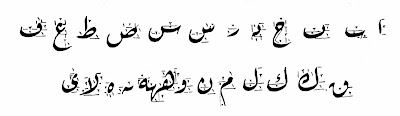 ا ب ن ج د ر س س ص ط ع ف
ق ك ك ل م ن و ه لا ي